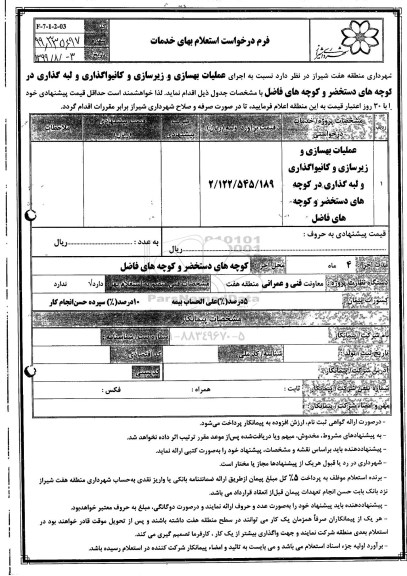 F-7-1-2-03
فرم درخواست استعلام بهای خدمات
شهرداری منطقه هفت شیراز در نظر دارد نسبت به اجرای عملیات بهسازی و زیرسازی و کانیواگذاری و لبه گذاری در
کوچه های دستخضر و کوچه های فاضل با مشخصات جدول ذیل اقدام نماید. لذا خواهشمند است حداقل قیمت پیشنهادی خود
را با ۳۰ روز اعتبار قیمت به این منطقه اعلام فرمایید، تا در صورت صرفه و صلاح شهرداری شیراز برابر مقررات اقدام گردد.
۱
عملیات بهسازی و
زیرسازی و کانیواگذاری
و لبه گذاری در کوچه
های دستخضر و کوچه
های فاضل
۲/۱۲۲/۵۴۵/۱۸۹
قیمت پیشنهادی به حروف :
ریال به عدد : ریال
۴ ماه کوچه های دستخضر و کوچه های فاضل
معاونت فنی و عمرانی منطقه هفت دارد ندارد
۵درصد(٪)علی الحساب بیمه ۱۰درصد(٪) سپرده حسن انجام کار
مشخصات پیمانکار
نام شرکت/ پیمانکار:
آدرس شرکت/ پیمانکار:
ثابت : همراه : فکس :
مهر و امضاء شرکت/ پیمانکار:
- درصورت ارائه گواهی ثبت نام، ارزش افزوده به پیمانکار پرداخت می‌شود.
- به پیشنهادهای مشروط، مخدوش، مبهم ویا دریافت‌شده پس‌از موعد مقرر ترتیب اثر داده نخواهد شد.
- پیشنهاددهنده باید براساس نقشه و مشخصات، پیشنهاد خود را به‌صورت کتبی ارائه نماید.
- شهرداری در رد یا قبول هریک از پیشنهادها مجاز یا مختار است.
- برنده استعلام موظف به پرداخت ۵٪ کل مبلغ پیمان ازطریق ارائه ضمانتنامه بانکی یا واریز نقدی به‌حساب شهرداری منطقه هفت شیراز
نزد بانک بابت حسن انجام تعهدات پیمان قبل‌از انعقاد قرارداد می باشد.
- پیشنهاددهنده باید پیشنهاد خود را به‌صورت عدد و حروف ارائه نمایند و درصورت دوگانگی، مبلغ به حروف معتبر خواهدبود.
- هر یک از پیمانکاران صرفاً همزمان یک کار می توانند در سطح منطقه هفت داشته باشند و پس از تحویل موقت قادر خواهند بود در
استعلام بعدی منطقه شرکت نمایند و جهت واگذاری بیشتر از یک کار ، کارفرما تصمیم گیری می کند.
- برآورد اولیه جزء اسناد استعلام می باشد و می بایست به تائید و امضاء پیمانکار شرکت کننده در استعلام رسیده باشد.